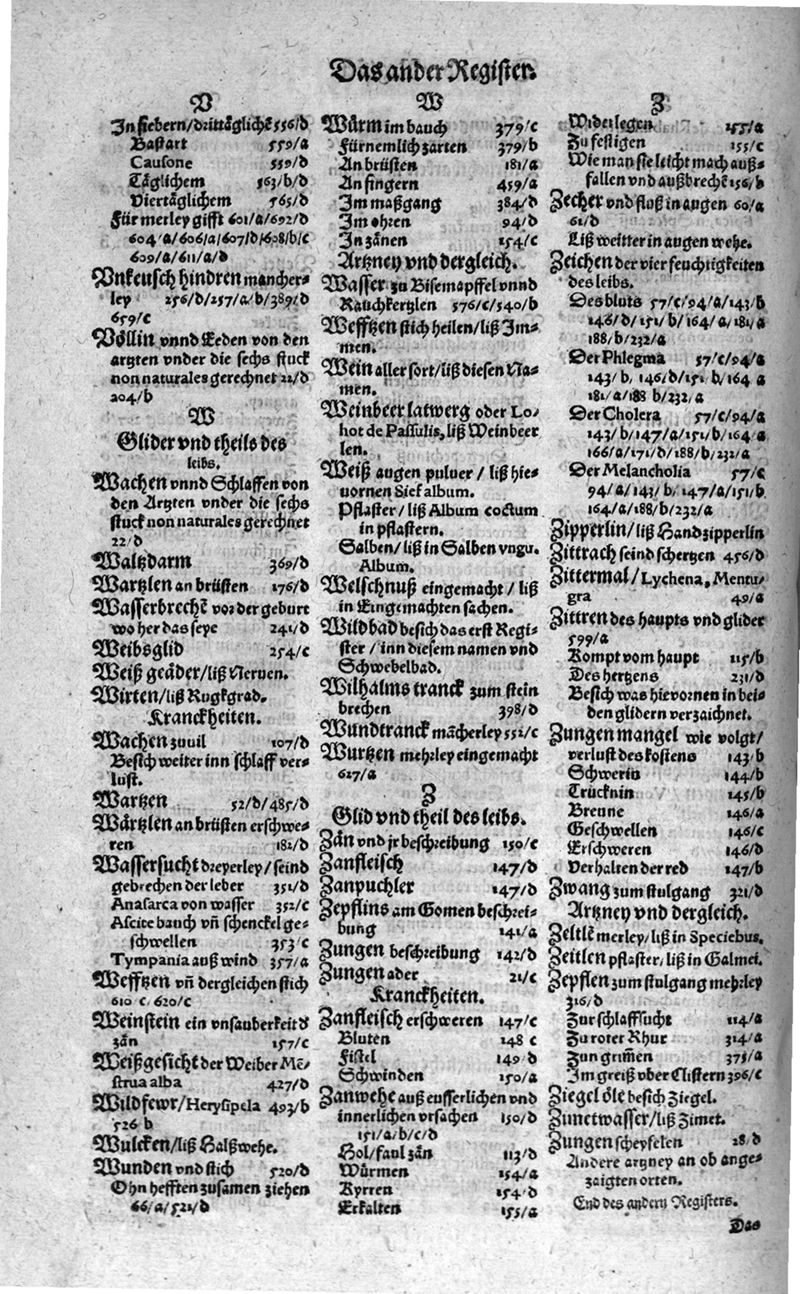 Das ander Register.
V
In fiebern/drittäglichē 556/d
Bastart 559/a
Causone 559/d
Täglichem 563/b/d
Viertäglichem 565/d
Für merley gifft 601/a/692/d
604/a/606/a/607/d/608/b/c
609/a/611/a/d
Vnkeusch hindren mancher-
ley 256/d/257/a/b/389/d
659/c
Völlin vnnd Leden von den
artzten vnder die sechs stuck
non naturales gerechnet 22/d
204/b
W
Glider vnd theils des
leibs.
Wachen vnnd Schlaffen von
den Artzten vnder die sechs
stuck non naturales gerechnet
22/d
Waltzdarm 369/d
Wartzlen an brüsten 176/d
Wasserbrechē vor der geburt
wo her das seye 241/d
Weibsglid 254/c
Weiß geäder/liß Neruen.
Wirten/liß Rugkgrad.
Kranckheiten.
Wachen zuuil 107/d
Besich weiter inn schlaff ver-
lust.
Wartzen 52/d/485/d
Wärtzlen an brüsten erschwe-
ren 182/d
Wassersucht dreyerley/seind
gebrechen der leber 351/d
Anasarca von wasser 352/c
Ascite bauch vñ schenckel ge-
schwellen 353/c
Tympania auß wind 357/a
Wefftzen vñ dergleichen stich
610 c/620/c
Weinstein ein vnsauberkeit d
zän 157/c
Weißgesicht der Weiber Mē-
strua alba 427/d
Wildfewr/Herysipela 493/b
526 b
Wulcken/liß Halßwehe.
Wunden vnd stich 520/d
Ohn hefften zusamen ziehen
66/a/521/d
W
Würm im bauch 379/c
Fürnemlich zarten 379/b
An brüsten 181/a
An fingern 459/a
Im maßgang 384/d
Im ohren 94/d
In zänen 154/c
Artzney vnd dergleich.
Wasser zu Bisemapffel vnnd
Rauchkertzlen 576/c/540/b
Wefftzen stich heilen/liß Im-
men.
Wein aller sort/liß diesen Na-
men.
Weinbeer latwerg oder Lo-
hot de Passulis, liß Weinbeer
len.
Weiß augen puluer/liß hie-
uornen Sief album.
Pflaster/liß Album coctum
in pflastern.
Salben/liß in Salben vngu.
Album.
Welschnuß eingemacht/liß
in Eingemachten sachen.
Wildbad besich das erst Regi-
ster/inn diesem namen vnd
Schwebelbad.
Wilhalms tranck zum stein
brechen 398/d
Wundtranck mācherley 552/c
Wurtzen mehrley eingemacht
627/a
Z
Glid vnd theil des leibs.
Zän vnd jr beschreibung 150/c
Zanfleisch 147/d
Zanpuchler 147/d
Zepflins am Gomen beschrei-
bung 141/a
Zungen beschreibung 142/d
Zungen ader 21/c
Kranckheiten.
Zanfleisch erschweren 147/c
Bluten 148 c
Fistel 149 d
Schwinden 150/a
Zanwehe auß eusserlichen vnd
innerlichen vrsachen 150/d
151/a/b/c/d
Hol/faul zän 113/d
Würmen 154/a
Kyrren 154/d
Erkalten 155/a
Z
Widerlegen 155/a
Zu festigen 155/c
Wie man sie leicht mach auß-
fallen vnd außbrechē 156/b
Zecher vnd fluß in augen 60/a
61/d
Liß weitter in augen wehe.
Zeichen der vier feuchtigkeiten
des leibs.
Des bluts 57/c/94/a/143/b
146/d/151/b/164/a/181/a
188/b/232/a
Der Phlegma 57/c/94/a
143/b, 146/d/151 b/164 a
181/a/188 b/232/a
Der Cholera 57/c/94/a
143/b/147/a/151/b/164 a
166/a/171/d/188/b/232/a
Der Melancholia 57/c
94/a/143/b, 147/a/151/b
164/a/188/b/232/a
Zipperlin/liß Handzipperlin
Zittrach seind schertzen 456/d
Zittermal/Lychena, Mentu-
gra 49/a
Zittren des haupts vnd glider
599/a
Kompt vom haupt 115/b
Des hertzens 231/d
Besich was hievornen in bei-
den glidern verzaichnet.
Zungen mangel wie volgt/
verlust des kostens 143/b
Schwerin 144/b
Trücknin 145/b
Breune 146/a
Geschwellen 146/c
Erschweren 146/d
Verhalten der red 147/b
Zwang zum stulgang 321/d
Artzney vnd dergleich.
Zeltlē merley/liß in Speciebus.
Zeitlen pflaster/liß in Galmei.
Zepflen zum stulgang mehrley
316/d
Zur schlaffsucht 114/a
Zu roter Rhur 314/a
Zun grim̃en 371/a
Im greiß vber Clistern 396/c
Ziegel öle besich Ziegel.
Zimetwasser/liß Zimet.
Zungen scheyselen 28/d
Andere artzney an ob ange-
zaigten orten.
End des andern Registers.
Das